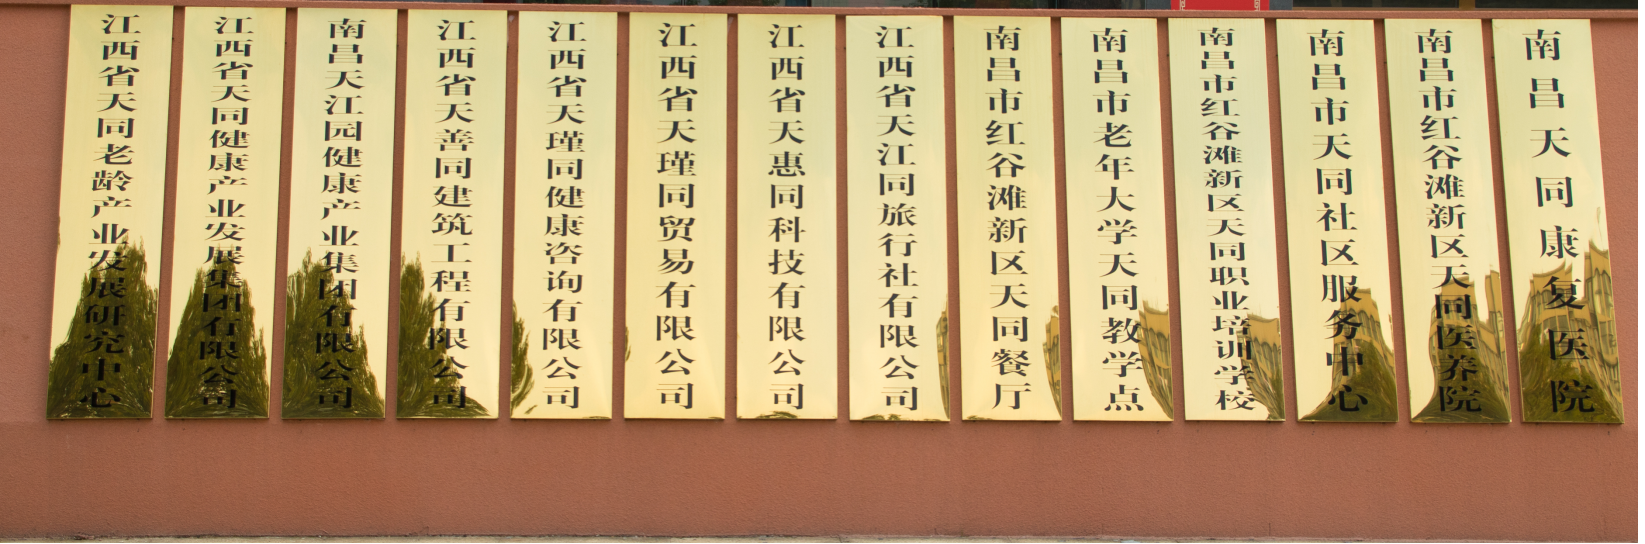 江西省天同老龄产业发展研究中心
江西省天同健康产业发展集团有限公司
南昌天江园健康产业集团有限公司
江西省天善同建筑工程有限公司
江西省天瑾同健康咨询有限公司
江西省天瑾同贸易有限公司
江西省天惠同科技有限公司
江西省天江同旅行社有限公司
南昌市红谷滩新区天同餐厅
南昌市老年大学天同教学点
南昌市红谷滩新区天同职业培训学校
南昌市天同社区服务中心
南昌市红谷滩新区天同医养院
南昌天同康复医院